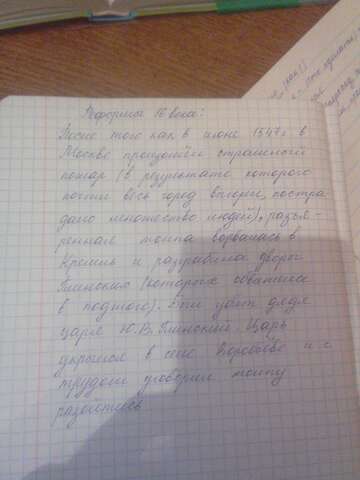 Реформы 16 века:
После того как в июне 1547 г. в
Москве произошёл страшный
пожар (в результате которого
почти весь город выгорел, постра
дало множество людей), разъя-
ренная толпа ворвалась в
Кремль и разграбила дворы
Глинских (которых обвинили
в поджоге). Был убит дядя
царя Ю.В. Глинский. Царь
укрылся в селе Воробьёве и с
трудом уговорил толпу
разойтись